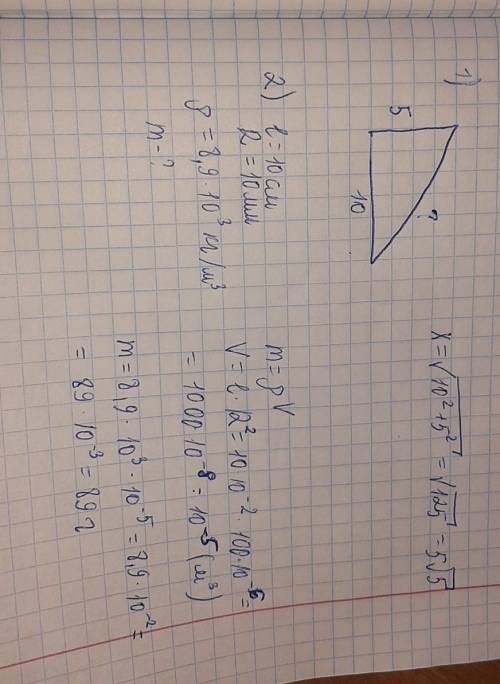 1)
5
10
?
x = √10² + 5² = √125 = 5√5
2) l = 10 см
R = 10 мм
ρ = 8,9 · 10³ кг/м³
m = ?
m = ρV
V = l · R² = 10 · 10⁻² · 100 · 10⁻⁶ =
= 1000 · 10⁻⁸ = 10⁻⁵ (м³)
m = 8,9 · 10³ · 10⁻⁵ = 8,9 · 10⁻² =
= 89 · 10⁻³ = 89 г